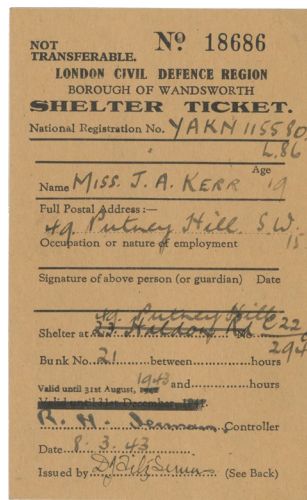 NOT
TRANSFERABLE.
Nº 18686
LONDON CIVIL DEFENCE REGION
BOROUGH OF WANDSWORTH
SHELTER TICKET.
National Registration No. YAKN 115580
L.86
Age
Name MISS. J. A. KERR 19
Full Postal Address:—
49 Putney Hill. S.W.
15
Occupation or nature of employment
Signature of above person (or guardian) Date
49 Putney Hill
Shelter at 23 Rd No. C22
294
Bunk No. 21 between hours
1943
Valid until 31st August, and hours
Valid until 31st December,
R. H. Controller
Date 8.3.43
Issued by (See Back)